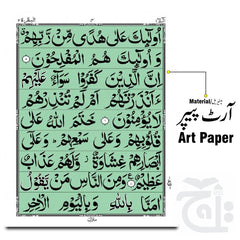 أُولَٰئِكَ عَلَىٰ هُدًى مِّن رَّبِّهِمْ
وَأُولَٰئِكَ هُمُ الْمُفْلِحُونَ
إِنَّ الَّذِينَ كَفَرُوا سَوَاءٌ عَلَيْهِمْ
ءَأَنذَرْتَهُمْ أَمْ لَمْ تُنذِرْهُمْ
قُلُوبِهِمْ وَعَلَىٰ سَمْعِهِمْ وَعَلَىٰ
أَبْصَارِهِمْ غِشَاوَةٌ وَلَهُمْ عَذَابٌ
عَظِيمٌ وَمِنَ النَّاسِ مَن يَقُولُ
آمَنَّا بِاللَّهِ وَبِالْيَوْمِ الْآخِرِ
Material/مٹیریل
آرٹ پیپر
Art Paper